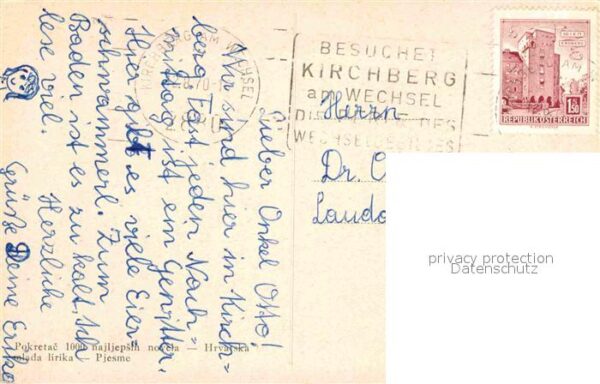 Lieber Onkel Otto!
Wir sind hier in Kirch=
berg. Fast jeden Nach=
mittag ist ein Gewitter.
Hier gibt es viele Eier=
schwammerl. Zum
Baden ist es zu kalt. Ich
lese viel.
Herzliche
Grüße Deine Erika
KIRCHBERG AM WECHSEL
BESUCHET
KIRCHBERG
am WECHSEL
WIEN
ERDBERG
1.50
REPUBLIK ÖSTERREICH
Herrn
Dr. O
Lauda
privacy protection
Datenschutz
Pokretač 1000 najljepših novela — Hrvatska
mlada lirika — Pjesme